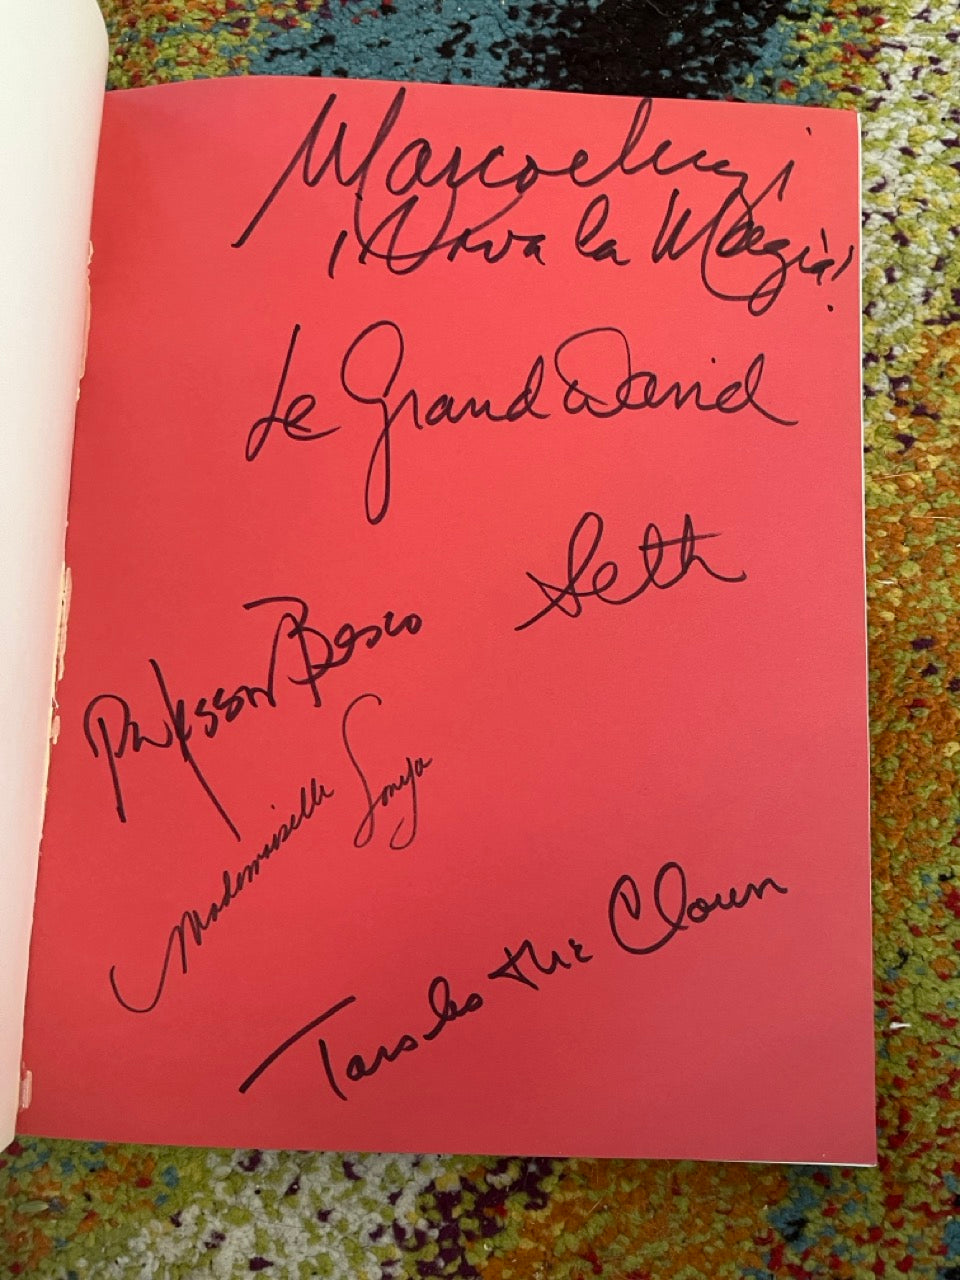 Marco el Magi
¡Viva la Magia!
Le Grand David
Seth
Professor Besco
Mademoiselle Sonya
the Clown